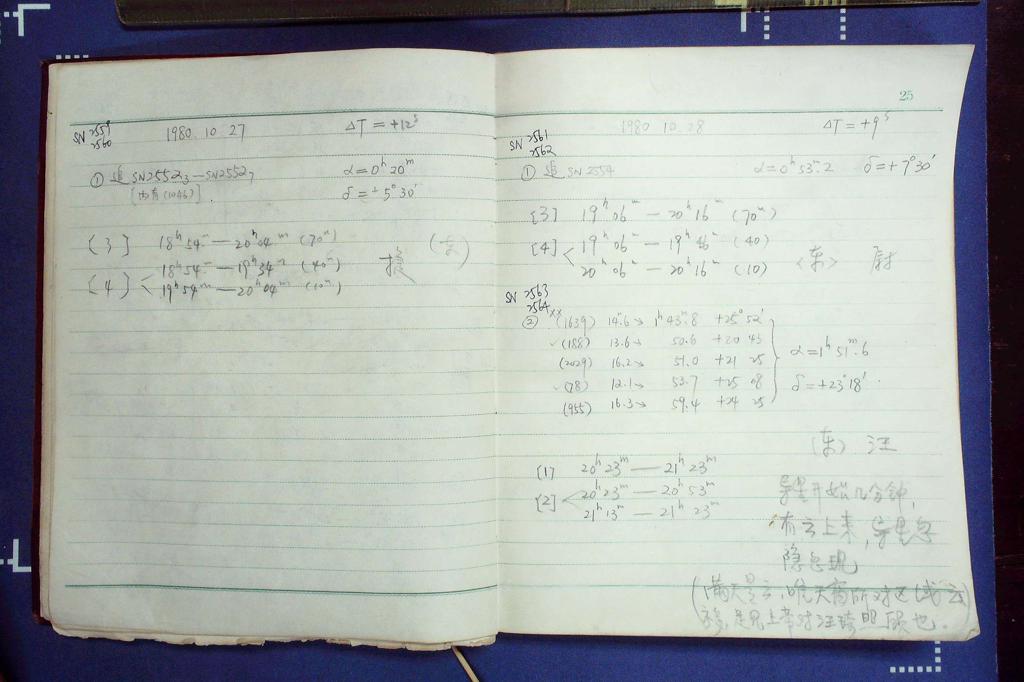 SN 2559
2560
1980.10.27
ΔT = +12ˢ
① 追 SN2552₃—SN2552₇
α=0ʰ20ᵐ
[内有(1046)]
δ=+5°30′
[3] 18ʰ54ᵐ—20ʰ04ᵐ (70ᵐ)
[4] 18ʰ54ᵐ—19ʰ34ᵐ (40ᵐ)
19ʰ54ᵐ—20ʰ04ᵐ (10ᵐ)
25
SN 2561
2562
1980.10.28
ΔT=+9ˢ
① 追 SN2554
α=0ʰ53ᵐ.2 δ=+7°30′
[3] 19ʰ06ᵐ—20ʰ16ᵐ (70ᵐ)
[4] 19ʰ06ᵐ—19ʰ46ᵐ (40)
20ʰ06ᵐ—20ʰ16ᵐ (10)
<东> 尉
SN 2563
2564 xx
② (1639) 14.6→ 1ʰ43ᵐ.8 +25°52′
✓(188) 13.6→ 50.6 +20 43
(2029) 16.2→ 51.0 +21 25
✓(78) 12.1→ 53.7 +25 08
(955) 16.3→ 59.4 +24 25
α=1ʰ51ᵐ.6
δ=+23°18′
(东) 汪
[1] 20ʰ23ᵐ—21ʰ23ᵐ
[2] 20ʰ23ᵐ—20ʰ53ᵐ
21ʰ13ᵐ—21ʰ23ᵐ
导星开始几分钟,
有云上来,导星忽
隐忽现
(满天是云,唯天窗所对区域云
移,是见上帝对汪 也.)